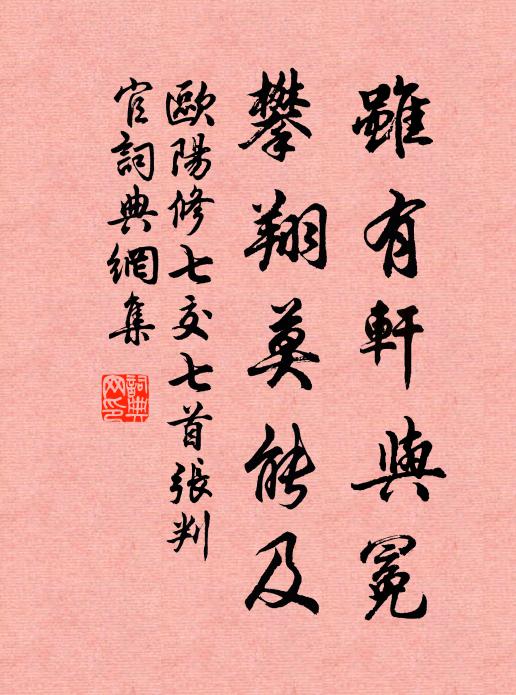 雖有軒與冕
攀翔莫能及
歐陽修七交七首張判
官詞典網集
詞典
网印